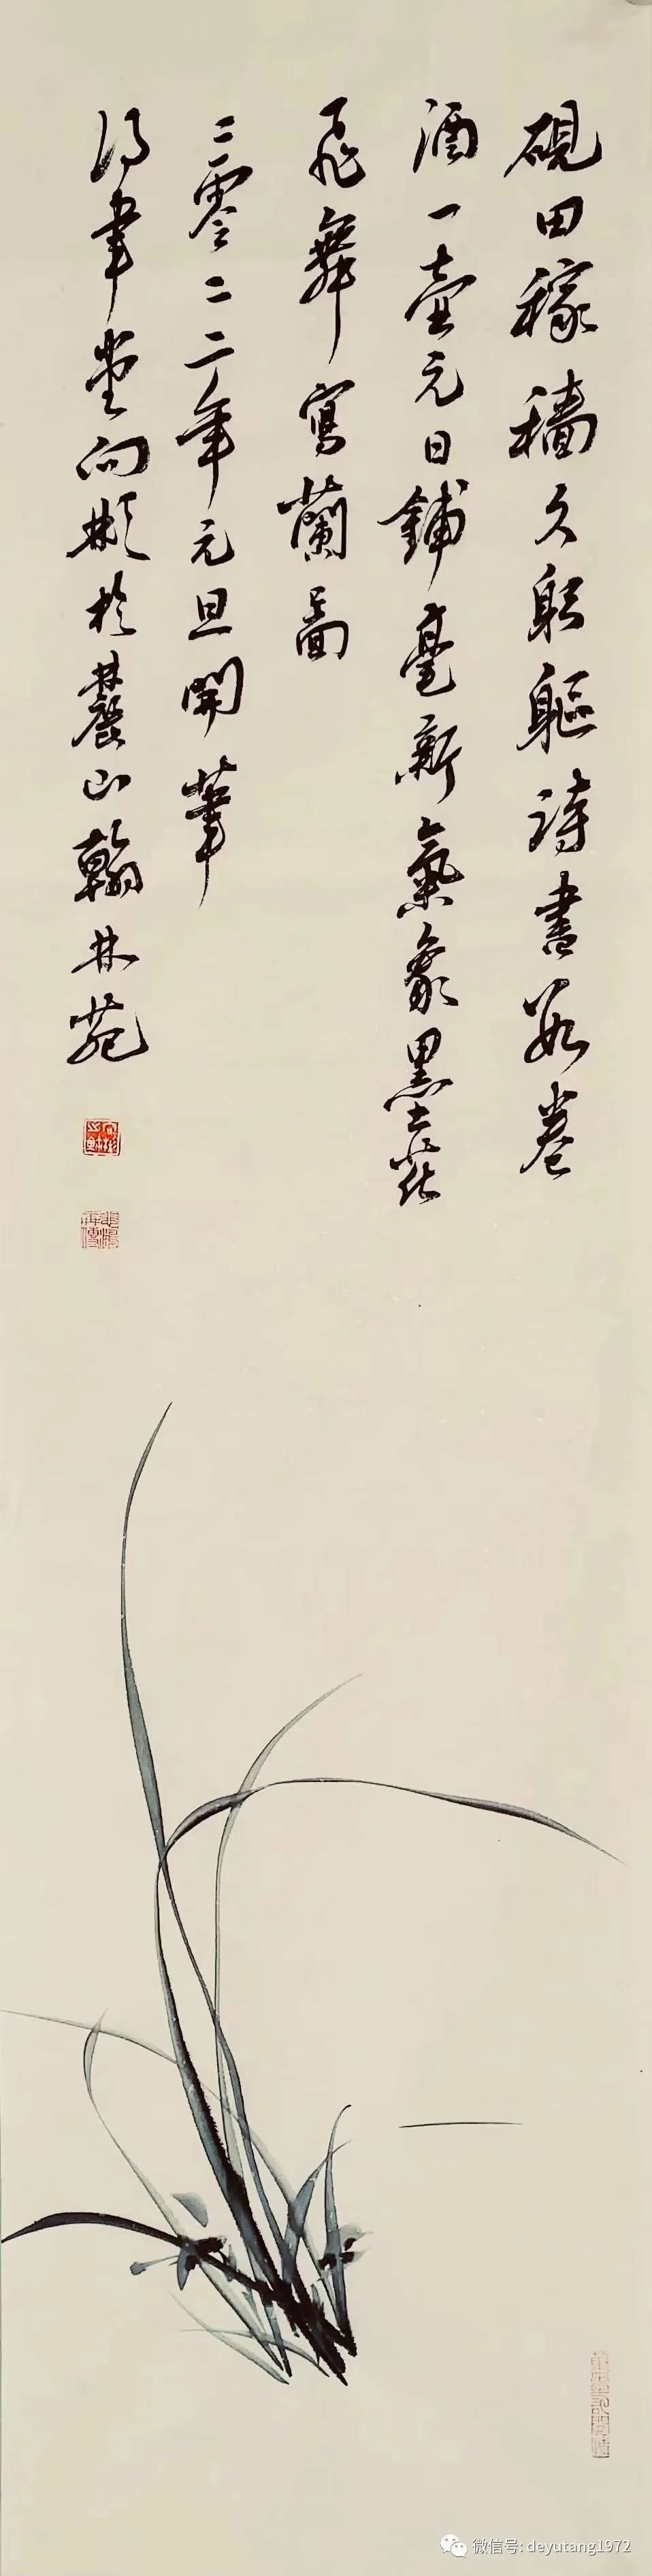 硯田稼穡久躬軀詩書數卷
酒一壺元日鋪毫新氣象墨花
飛舞寫蘭圖
二零二二年元旦開筆
得聿堂向彬於麓山翰林苑
微信号: deyutang1972